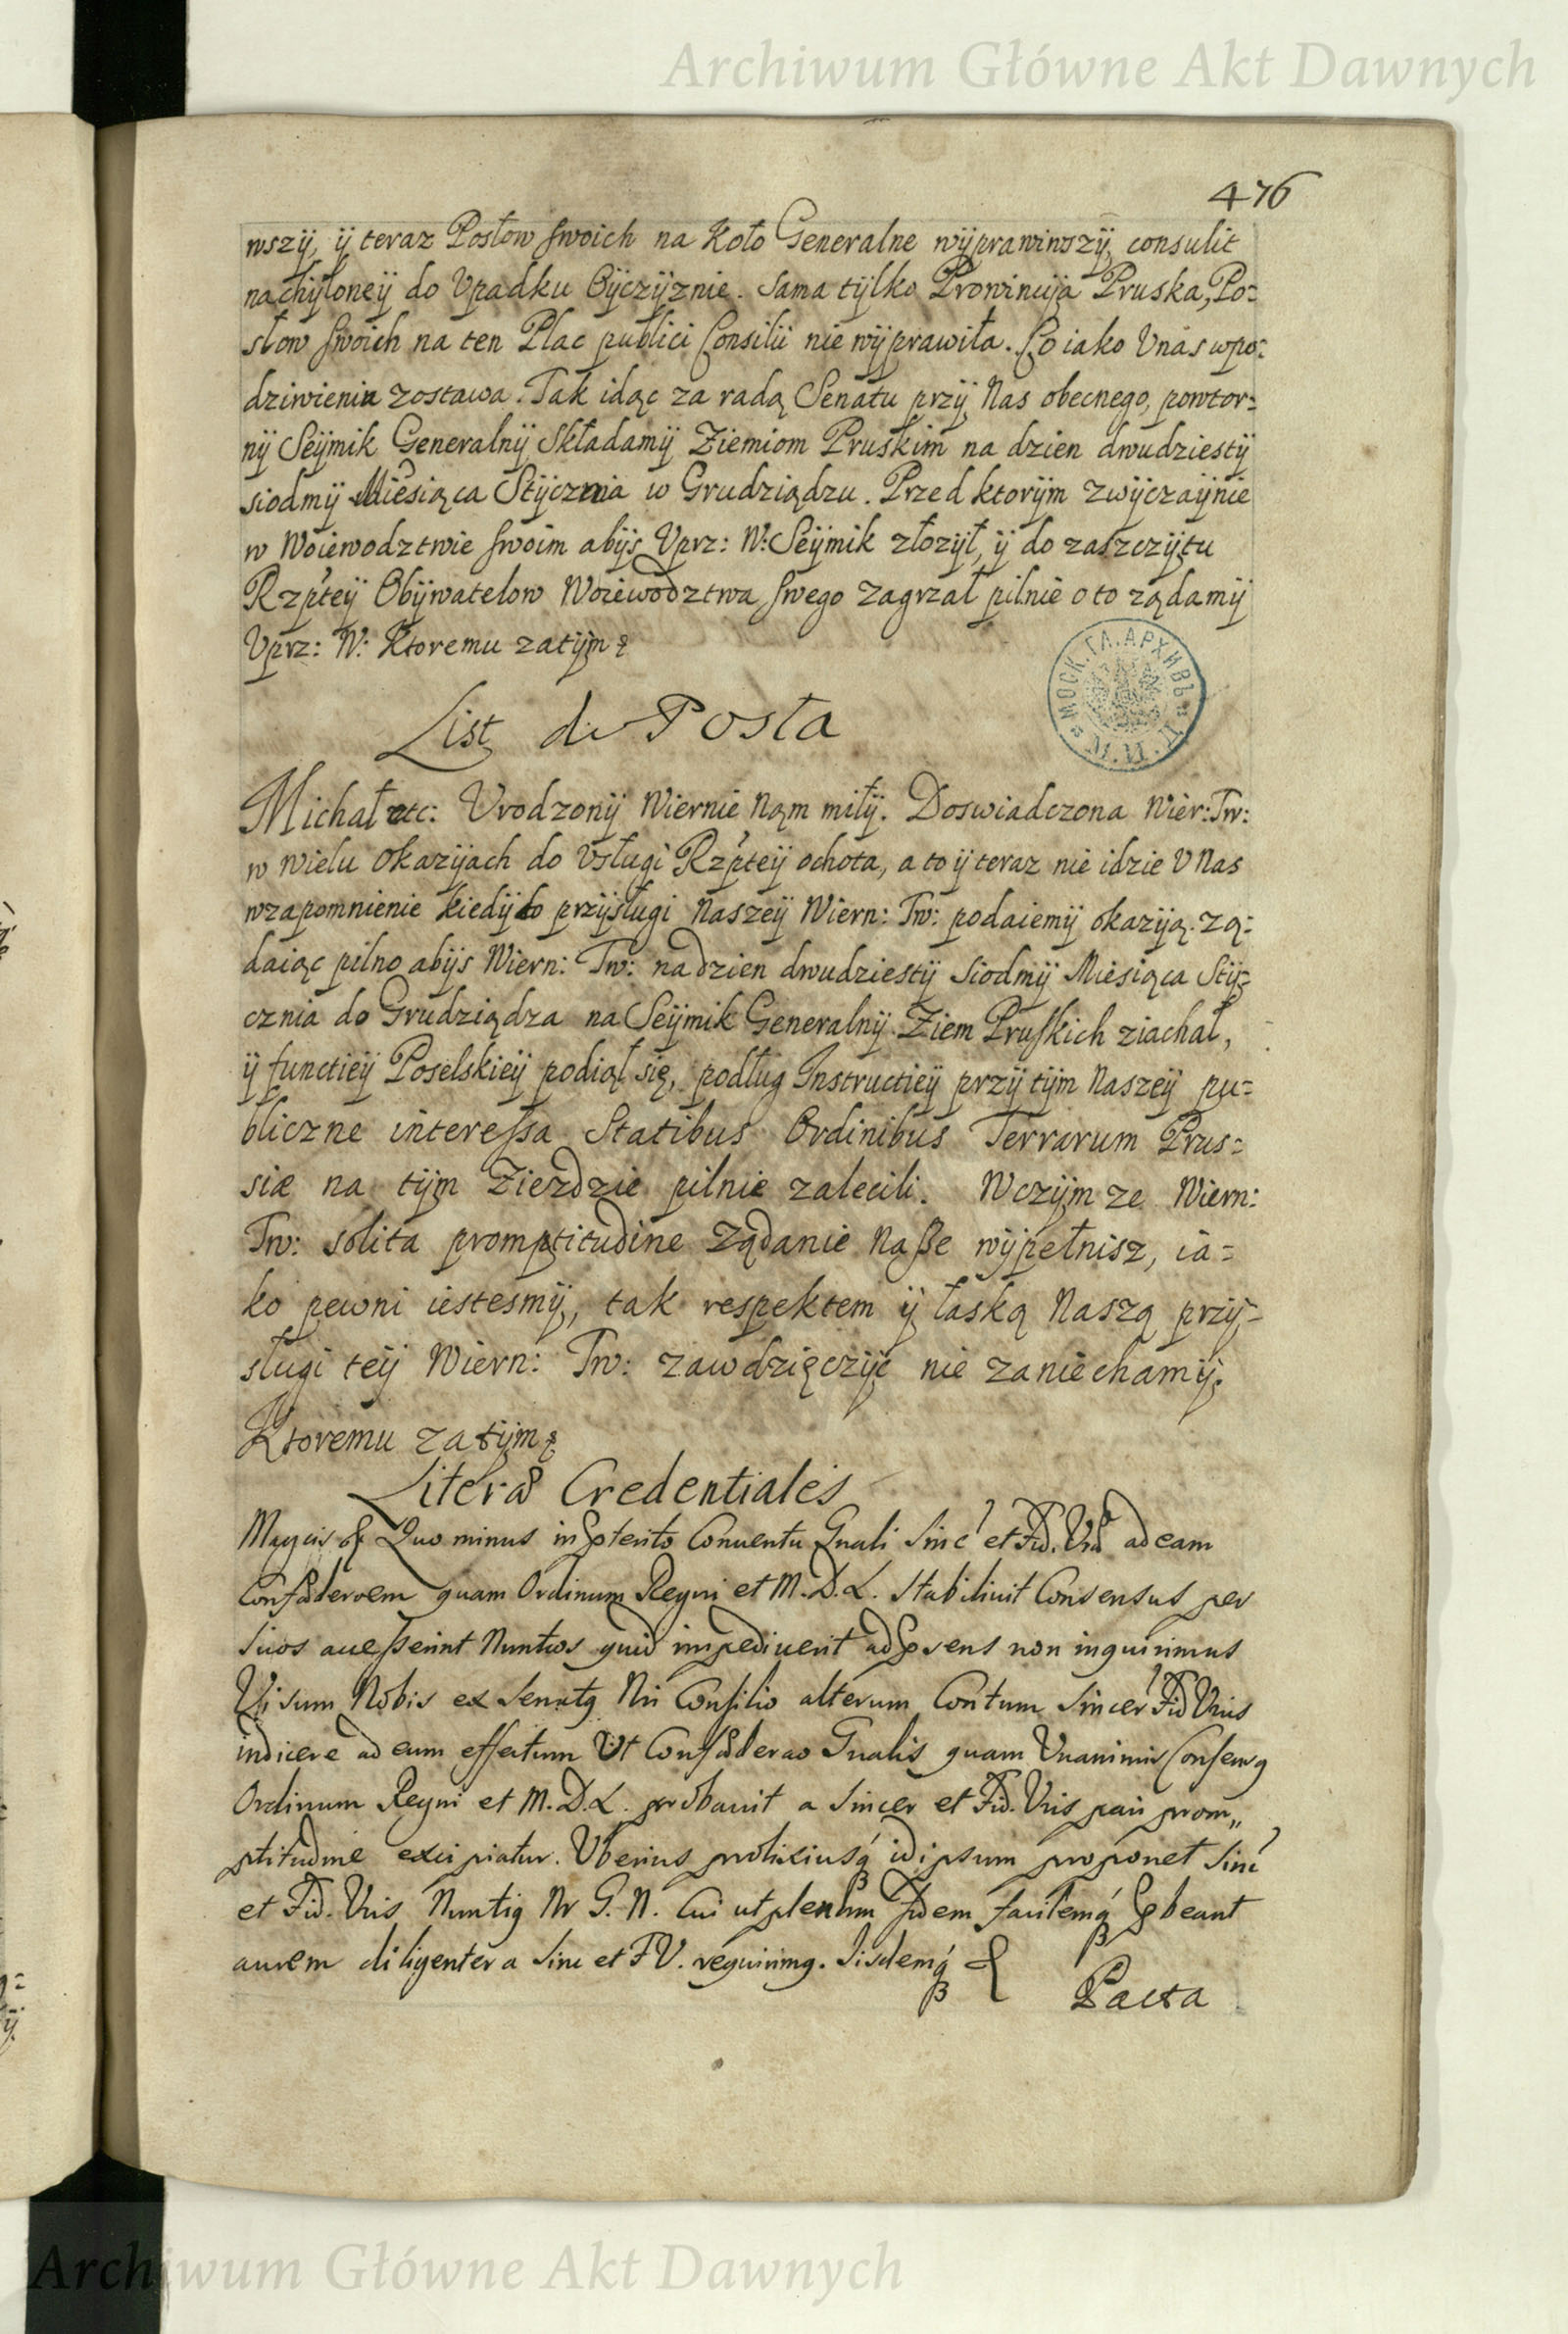 Archiwum Główne Akt Dawnych
476
wszÿ, ÿ teraz Posłow swoich na Koło Generalne wÿprawiwszÿ, consulit
nachÿloneÿ do Vpadku Oÿczÿznie. Sama tÿlko Prowincÿja Pruska, Po=
słow swoich na ten Plac publici Consilii nie wÿprawiła. Co iako Vnas wpo=
dziwieniu zostawa. Tak idąc za radą Senatu przÿ Nas obecnego, powtor=
nÿ Seÿmik Generalnÿ składamÿ Ziemiom Pruskim na dzien dwudziestÿ
siodmÿ Miesiąca Stÿcznia w Grudziądzu. Przed ktorÿm zwÿczaÿnie
w Woiewodztwie swoim abÿs Vprz: W: Seÿmik złozÿł, ÿ do zaszczÿtu
Rzpteÿ Obÿwatelow Woiewodztwa swego zagrzał pilnie o to ządamÿ
Vprz: W: Ktoremu zatÿm
МОСК. ГЛ. АРХИВЪ М. И. Д.
List do Posła
Michał etc: Vrodzonÿ Wiernie Nąm miłÿ. Doswiadczona Wier: Tw:
w wielu okazÿjach do Vsługi Rzpteÿ ochota, a to ÿ teraz nie idzie V Nas
wzapomnienie kiedÿ do przÿsługi Naszeÿ Wiern: Tw: podaiemÿ okazÿją. Zą=
daiąc pilno abÿs Wiern: Tw: na dzien dwudziestÿ siodmÿ Miesiąca Stÿ=
cznia do Grudziądza na Seÿmik Generalnÿ Ziem Pruskich ziachał,
ÿ functieÿ Poselskieÿ podiął się, podług Instructieÿ przÿ tÿm Naszeÿ pu=
bliczne interessa Statibus Ordinibus Terrarum Prus=
siæ na tÿm Zieździe pilnie zalecili. Wczÿm ze Wiern:
Tw: solita promptitudine Ządanie Nasze wÿpełnisz, ia=
ko pewni iestesmÿ, tak respektem ÿ łaską Naszą przÿ=
sługi teÿ Wiern: Tw: zawdzięczÿć nie zaniechamÿ.
Ktoremu zatÿm
Literæ Credentiales
Quo minus Conuentu Gnali Sinc et Fid. ad eam
quam Ordinum Regni et M. D. L. stabiliuit Consensus per
suos Nuntios quid impediuerit non inquirimus
Visum Nobis ex Senatq Nri Consilio alterum Sincer Fid Vris
indicere ad eum effectum Vt Gnalis quam Vnanimis
Ordinum Regni et M. D. L. probauit a Sincer et Fid. Vris pari prom„
ptitudine excipiatur. Vberius prolixiusq idipsum proponet Sinc
et Fid. Vris Nuntiq Nr G. N. Cui ut fidem beant
aurem diligenter a Sinc et F V. requirimq. Iisdemq
Pacta
Archiwum Główne Akt Dawnych